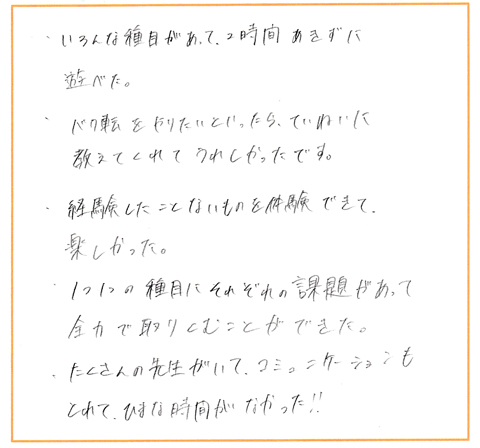 ・いろんな種目があって、2時間あきずに
遊べた。
・バク転をやりたいといったら、ていねいに
教えてくれてうれしかったです。
・経験したことないものを体験できて、
楽しかった。
・1つ1つの種目にそれぞれの課題があって
全力で取りくむことができた。
・たくさんの先生がいて、コミュニケーションも
とれて、ひまな時間がなかった!!